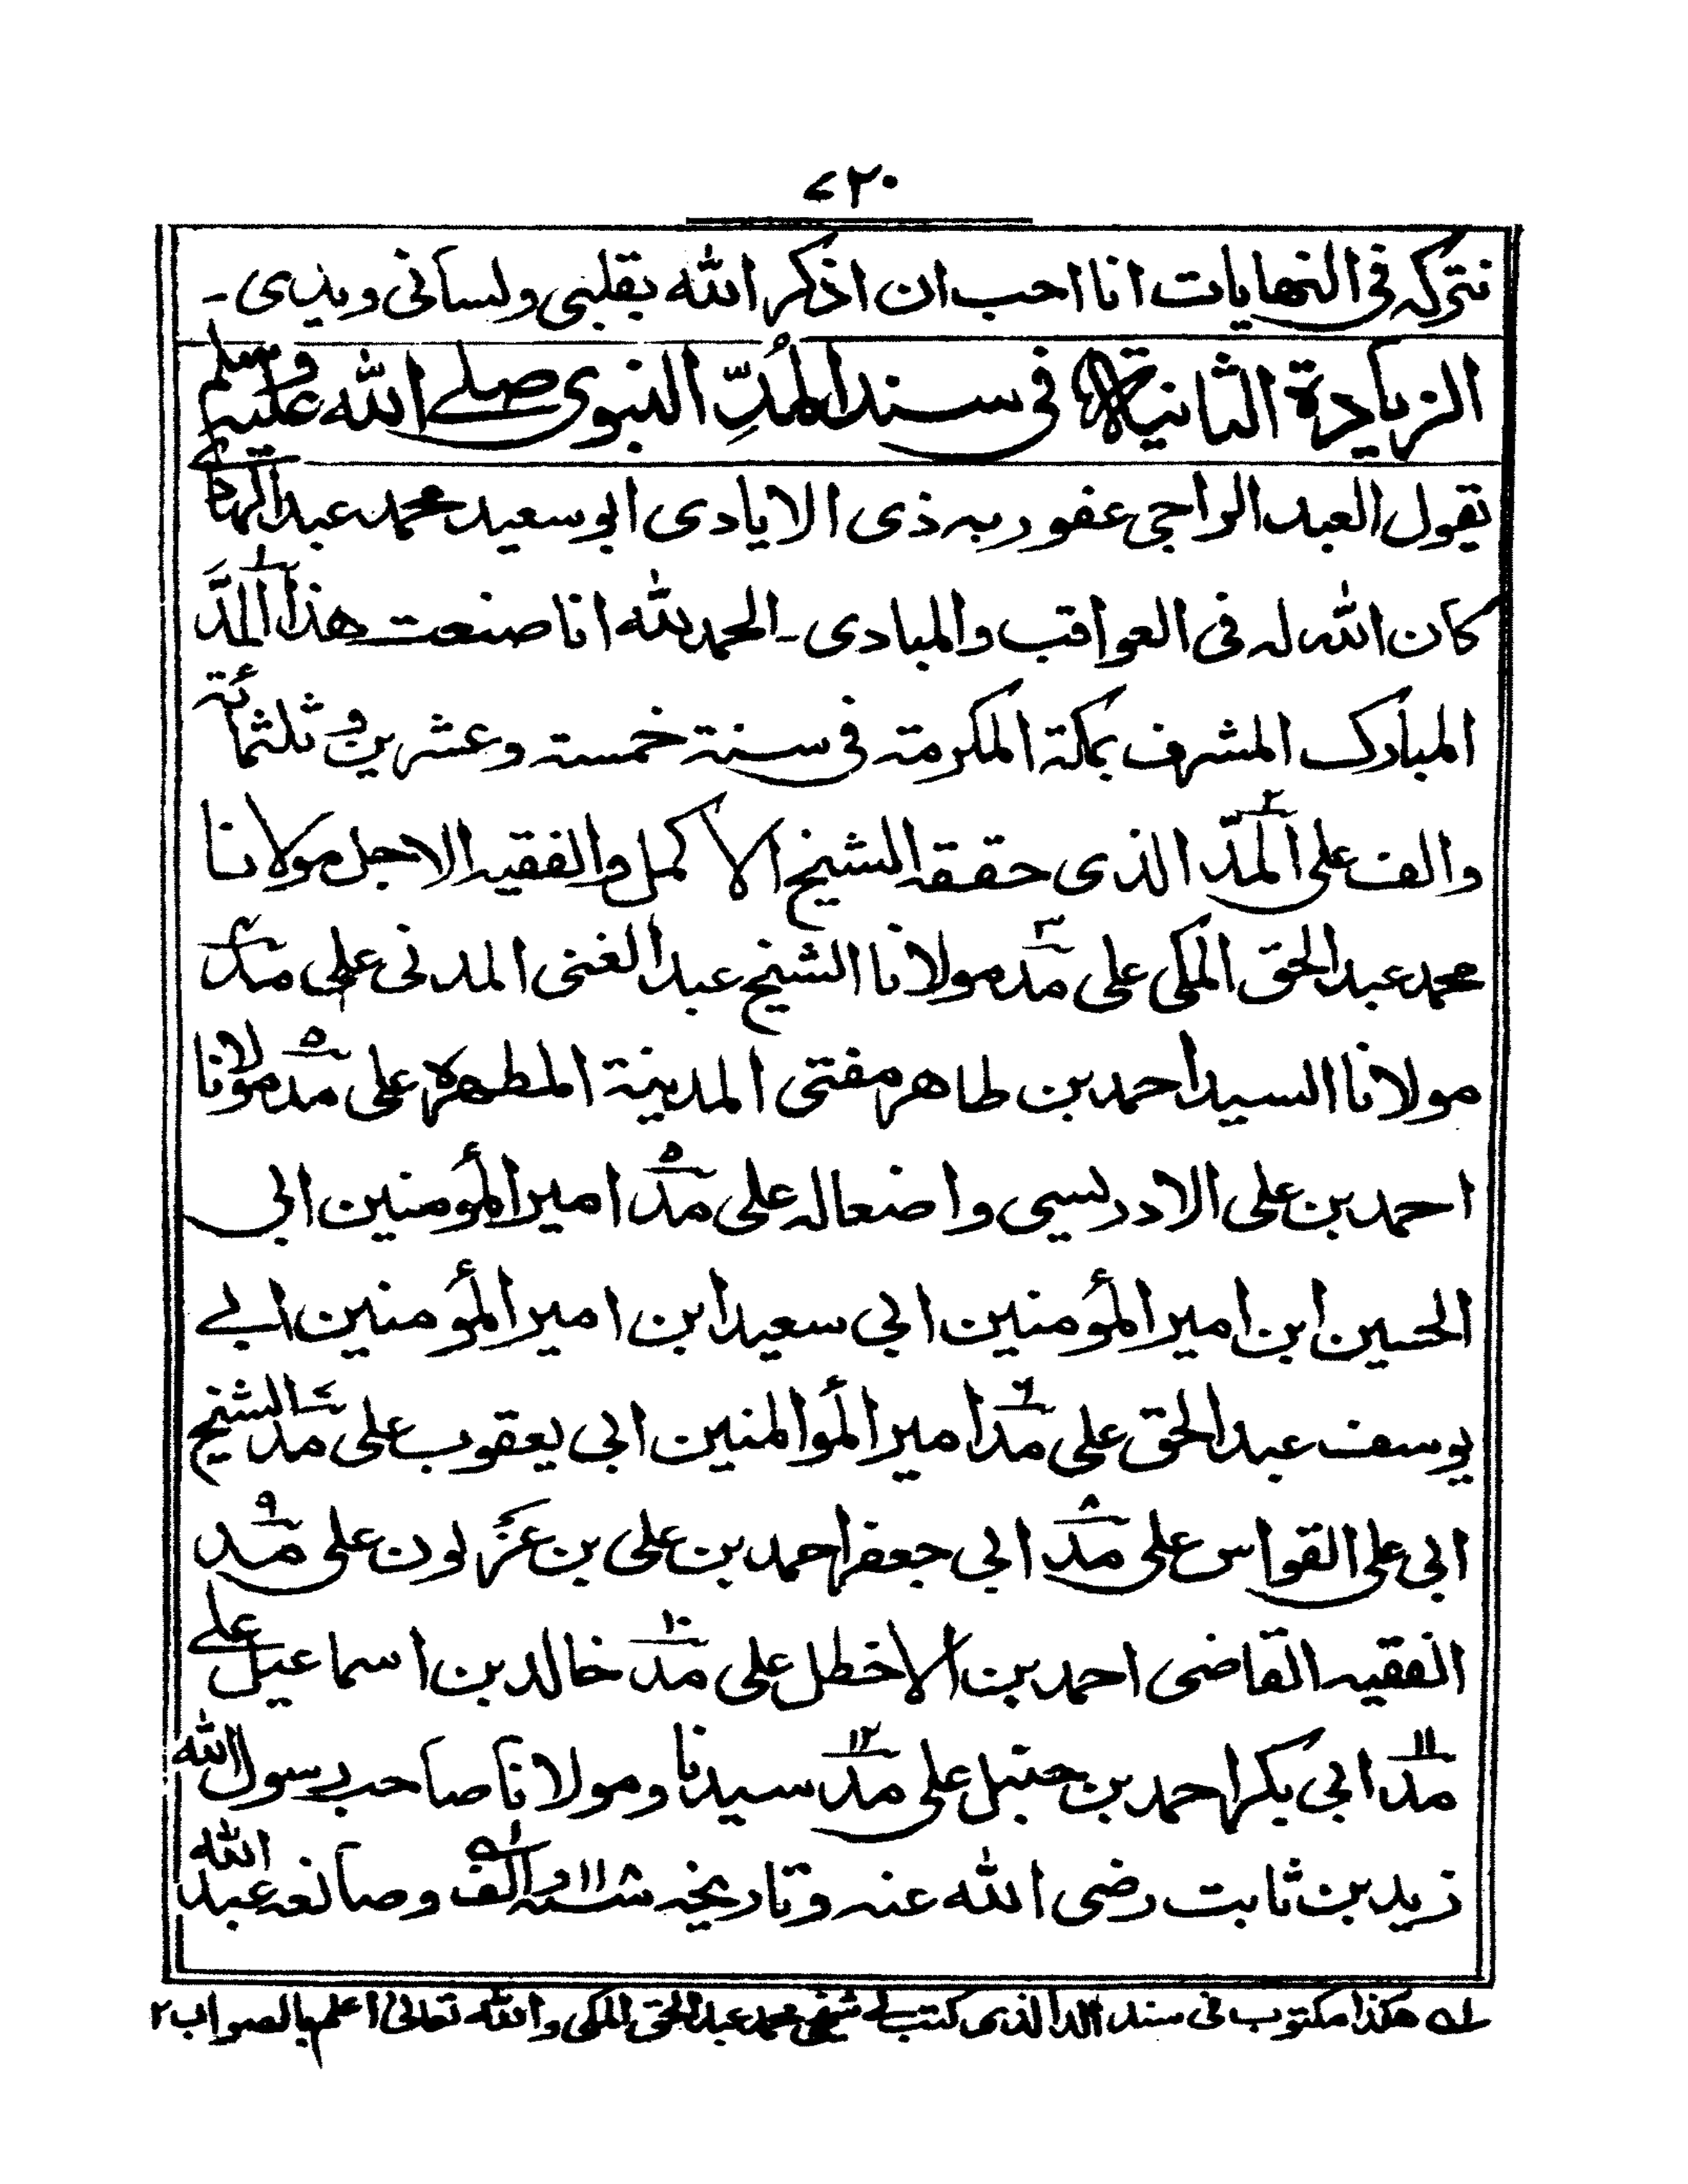 ٧٢٠
نتركه فى النهايات انا احب ان اذكر الله بقلبى ولسانى ويدى۔
الزيادة الثانية فى سند المُدِّ النبوى صلے الله عليه وسلم
يقول العبد الراجى عفو ربه ذى الايادى ابو سعيد محمد عبد الهادى
كان الله له فى العواقب والمبادى۔ الحمد لله انا صنعت هذا المدَّ ١
المبارك المشرف بمكة المكرمة فى سنة خمسة وعشرين وثلثمائة
والف على المدّ ٢ الذى حققه الشيخ الاكمل والفقيه الاجل مولانا
محمد عبد الحق المكى على مد ٣ مولانا الشيخ عبد الغنى المدنى على مد ٤
مولانا السيد احمد بن طاهر مفتى المدينة المطهرة على مد ٥ مولانا
احمد بن على الادريسى واضعاله على مد ٥ امير المؤمنين ابى
الحسين ابن امير المؤمنين ابى سعيد ابن امير المؤمنين ابے
يوسف عبد الحق على مد ٦ امير المؤالمنين ابى يعقوب على مد ٧ الشيخ
ابى على القواس على مد ٨ ابى جعفر احمد بن على بن عزلون على مد ٩
الفقيه القاضى احمد بن الاخطل على مد ١٠ خالد بن اسماعيل علے
مد ١١ ابى بكر احمد بن حنبل على مد ١٢ سيدنا ومولانا صاحب رسول الله
زيد بن ثابت رضى الله عنه وتاريخه سنة ١١٨ والف لہ وصانعه عبد الله
لہ هكذا مكتوب فى سند المد الذى كتب لے شيخى محمد عبد الحق المكى والله تعالىٰ اعلم بالصواب ٢